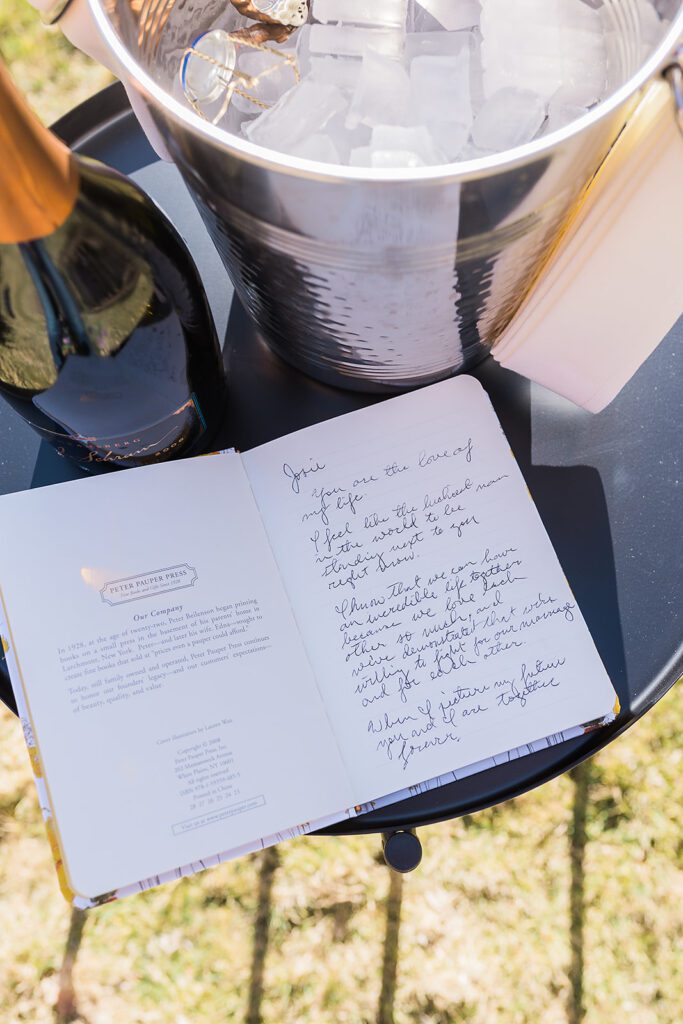 SCHRAMSBERG
J. Schram
2006
PETER PAUPER PRESS
Fine Books and Gifts Since 1928
Our Company
In 1928, at the age of twenty-two, Peter Beilenson began printing
books on a small press in the basement of his parents' home in
Larchmont, New York. Peter—and later his wife, Edna—sought to
create fine books that sold at "prices even a pauper could afford."
Today, still family owned and operated, Peter Pauper Press continues
to honor our founders' legacy—and our customers' expectations—
of beauty, quality, and value.
Cover illustration by Lauren Wan
Copyright © 2008
Peter Pauper Press, Inc.
202 Mamaroneck Avenue
White Plains, NY 10601
All rights reserved
Printed in China
28 27 26 25 24 23
Visit us at www.peterpauper.com
Josie
You are the love of
my life.
I feel like the luckiest man
in the world to be
standing next to you
right now.
I know that we can have
an incredible life together
because we love each
other so much, and
we've demonstrated that we're
willing to fight for our marriage
and for each other.
When I picture my future
you and I are together
forever.